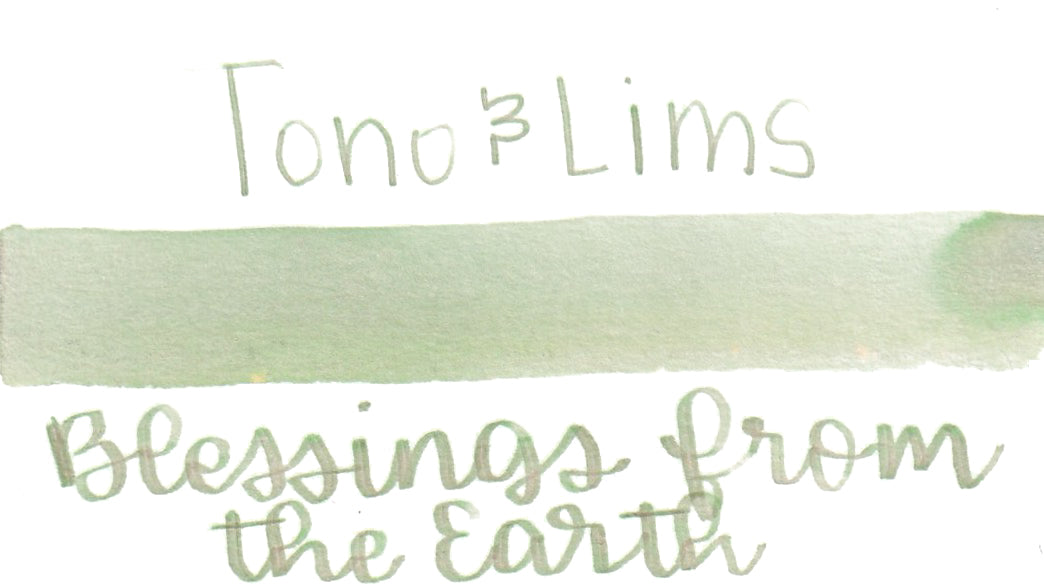 Tono & Lims
Blessings from
the Earth